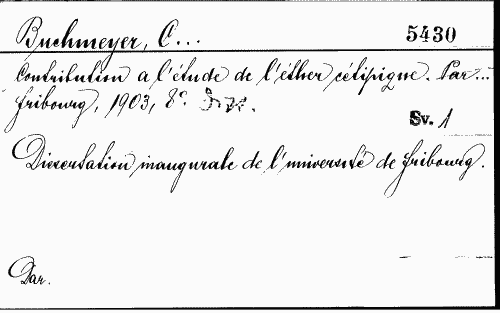 Buchmeyer, C...
5430
Contribution a l'étude de l'éther cétipique. Par...
Fribourg, 1903, 8°.
Sv. 1
Dissertation inaugurale de l'université de Fribourg.
Dar.